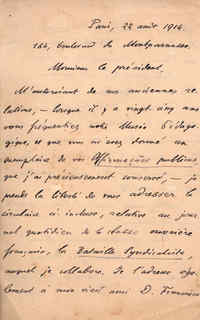 Paris, 22 août 1914.
164, boulevard de Montparnasse.
Monsieur le président,
M'autorisant de nos anciennes re-
lations, — lorsque il y a vingt-cinq ans
vous fréquentiez notre Musée Pédago-
gique, et que vous m'avez donné un
exemplaire de vos
que j'ai précieusement conservé, — je
prends la liberté de vous adresser la
circulaire ci-incluse, relative au jour-
nal quotidien de la classe ouvrière
française, la Bataille Syndicaliste,
auquel je collabore. Je l'adresse égale-
lement à mon vieil ami D. Francisco